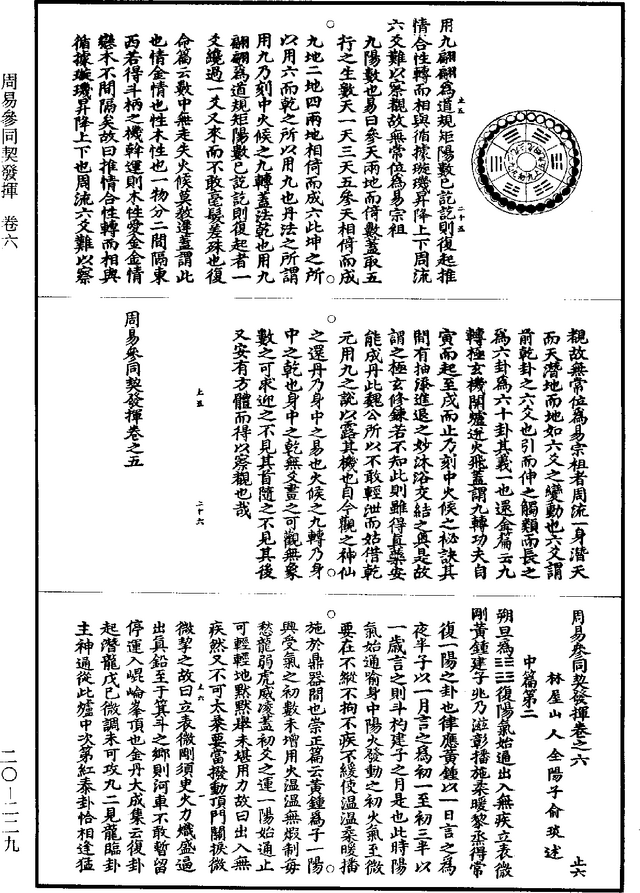 用九翩翩為道規矩陽數已訖訖則復起推
情合性轉而相與循據璇璣昇降上下周流
六爻難以察觀故無常位為易宗祖
九陽數也易曰參天兩地而倚數蓋取五
行之生數天一天三天五參天相倚而成
九地二地四兩地相倚而成六此坤之所
以用六而乾之所以用九也丹法之所謂
用九乃刻中火候之九轉蓋法乾也用九
翩翩為道規矩陽數已訖訖則復起者一
爻纔過一爻又來而不敢毫髮差殊也復
命篇云數中無走失火候莫教遲蓋謂此
也情金情也性木性也一物分二間隔東
西若得斗柄之機斡運則木性愛金金情
戀木不間隔矣故曰推情合性轉而相與
循據璇璣昇降上下也周流六爻難以察
上五 二十五
觀故無常位為易宗祖者周流一身潛天
而天潛地而地如六爻之變動也六爻謂
前乾卦之六爻也引而伸之觸類而長之
為六卦為六十卦其義一也還金篇云九
轉極玄機開爐迸火飛蓋謂九轉功夫自
寅而起至戌而止乃刻中火候之祕訣其
間有抽添進退之妙沐浴交結之奧是故
謂之極玄修鍊若不知此則雖得真藥安
能成丹此魏公所以不敢輕泄而姑借乾
元用九之說以露其機也自今觀之神仙
之還丹乃身中之易也火候之九轉乃身
中之乾也身中之乾無爻畫之可觀無象
數之可求迎之不見其首隨之不見其後
又安有方體而得以察觀也哉
上五 二十六
周易參同契發揮卷之五
周易參同契發揮卷之六 止六
林屋山人全陽子俞琰述
中篇第二
朔旦為䷗復陽氣始通出入無疾立表微
剛黃鍾建子兆乃滋彰播施柔暖黎烝得常
復一陽之卦也律應黃鍾以一日言之為
夜半子以一月言之為初一至初三半以
一歲言之則斗杓建子之月是也此時陽
氣始通喻身中陽火發動之初火氣至微
要在不縱不拘不疾不緩使溫溫柔暖播
施於鼎器間也崇正篇云黃鍾為子一陽
興受氣之初數未增用火溫溫無煆制每
愁龍弱虎威凌蓋初爻之運一陽始通止
可輕輕地默默舉未堪用力故曰出入無
疾然又不可太柔要當撥動頂門關捩微
上六 一
微挈之故曰立表微剛須臾火力熾盛逼
出真鉛至于箕斗之鄉則河車不敢暫留
停運入崐崙峯頂也金丹大成集云復卦
起潛龍戊己微調未可攻九二見龍臨卦
主神通從此爐中次第紅泰卦恰相逢猛
周易參同契發揮 卷六
二〇-二二九